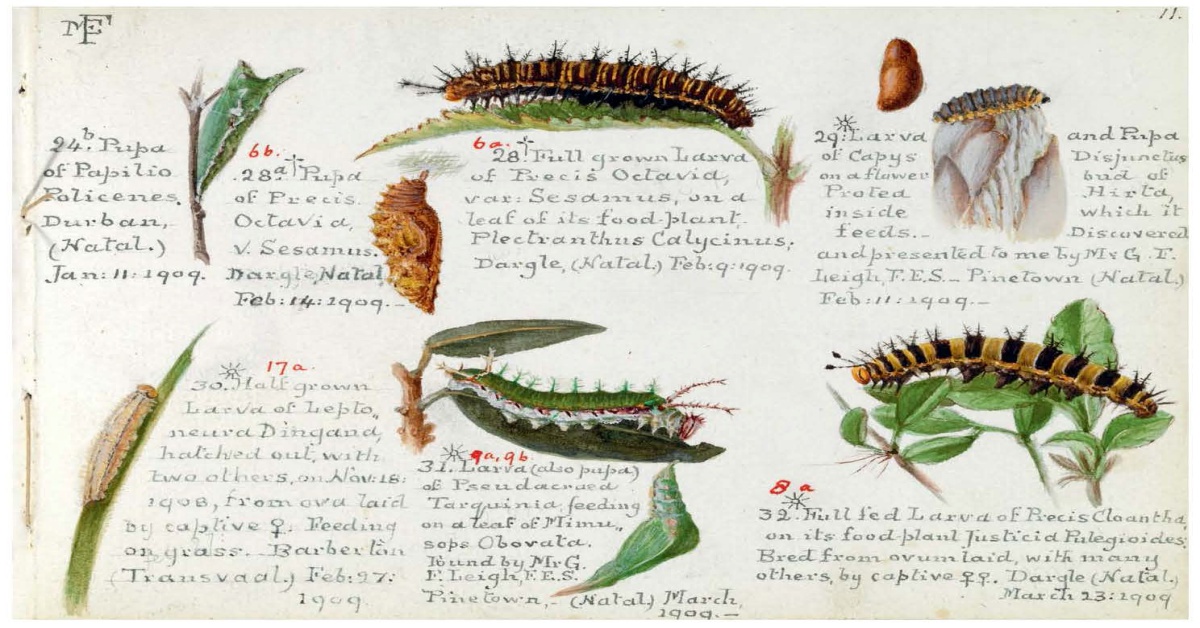 MEF
11.
24.b Pupa
of Papilio
Policenes.
Durban,
(Natal.)
Jan: 11: 1909.
6b.
28a Pupa
of Precis
Octavia,
v. Sesamus.
Dargle, Natal
Feb: 14: 1909.—
6a.
28. Full grown Larva
of Precis Octavia,
var: Sesamus, on a
leaf of its food plant,
Plectranthus Calycinus.
Dargle, (Natal.) Feb: 9: 1909.
29. Larva and Pupa
of Capys Disjunctus
on a flower bud of
Protea Hirta,
inside which it
feeds.— Discovered
and presented to me by Mr G. F.
Leigh, F.E.S.— Pinetown (Natal.)
Feb: 11: 1909.—
17a.
30. Half grown
Larva of Lepto„
neura Dingana,
hatched out, with
two others, on Nov: 18:
1908, from ova laid
by captive ♀. Feeding
on grass. Barberton
(Transvaal.) Feb: 27:
1909
9a, 9b.
31. Larva (also pupa)
of Pseudacraea
Tarquinia, feeding
on a leaf of Mimu„
sops Obovata.
Found by Mr G.
F. Leigh, F.E.S.
Pinetown,– (Natal) March,
1909.—
8a
32. Full fed Larva of Precis Cloantha,
on its food-plant Justicia Pulegioides.
Bred from ovum laid, with many
others, by captive ♀♀. Dargle (Natal.)
March 23: 1909